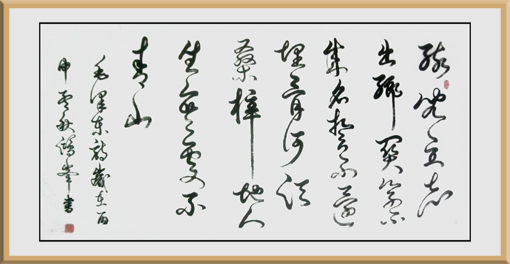 孩兒立志
出鄉關學不
成名誓不還
埋骨何須
桑梓地人
生無處不
青山
毛澤東詩歲在丙
申秋峯書